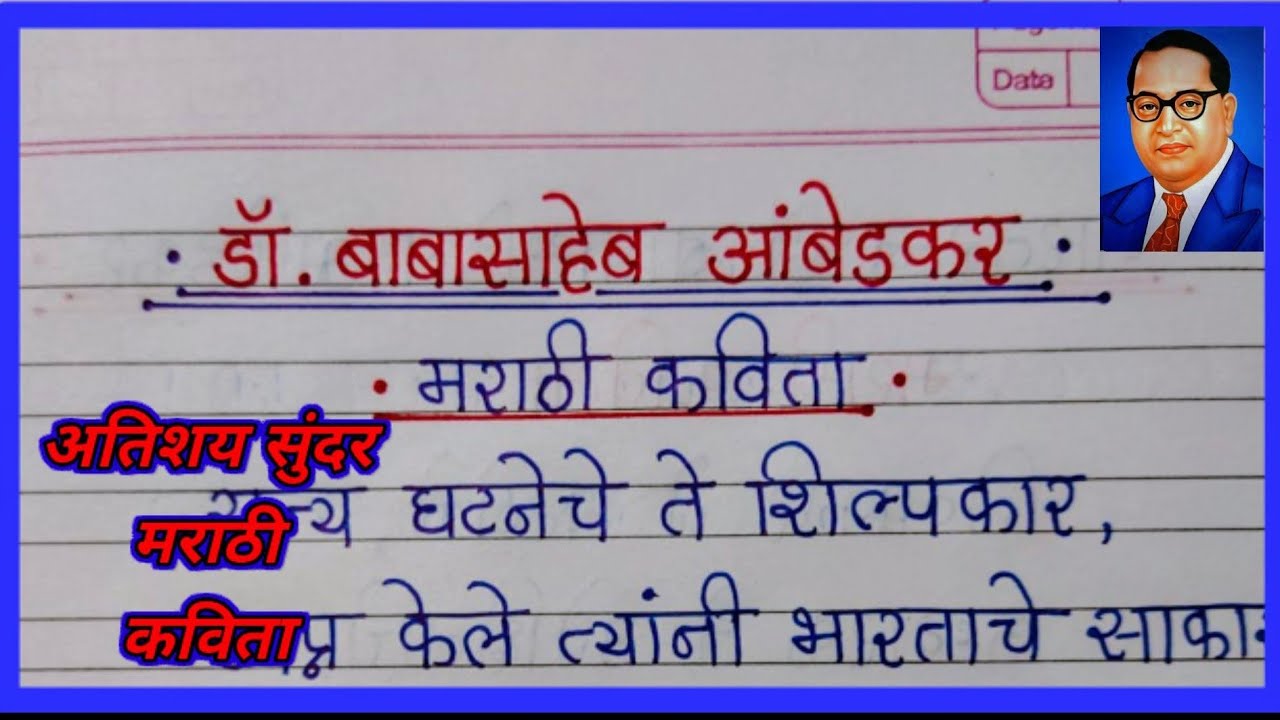 Date
डॉ. बाबासाहेब आंबेडकर
मराठी कविता
अतिशय सुंदर
मराठी
कविता
घटनेचे ते शिल्पकार,
केले त्यांनी भारताचे